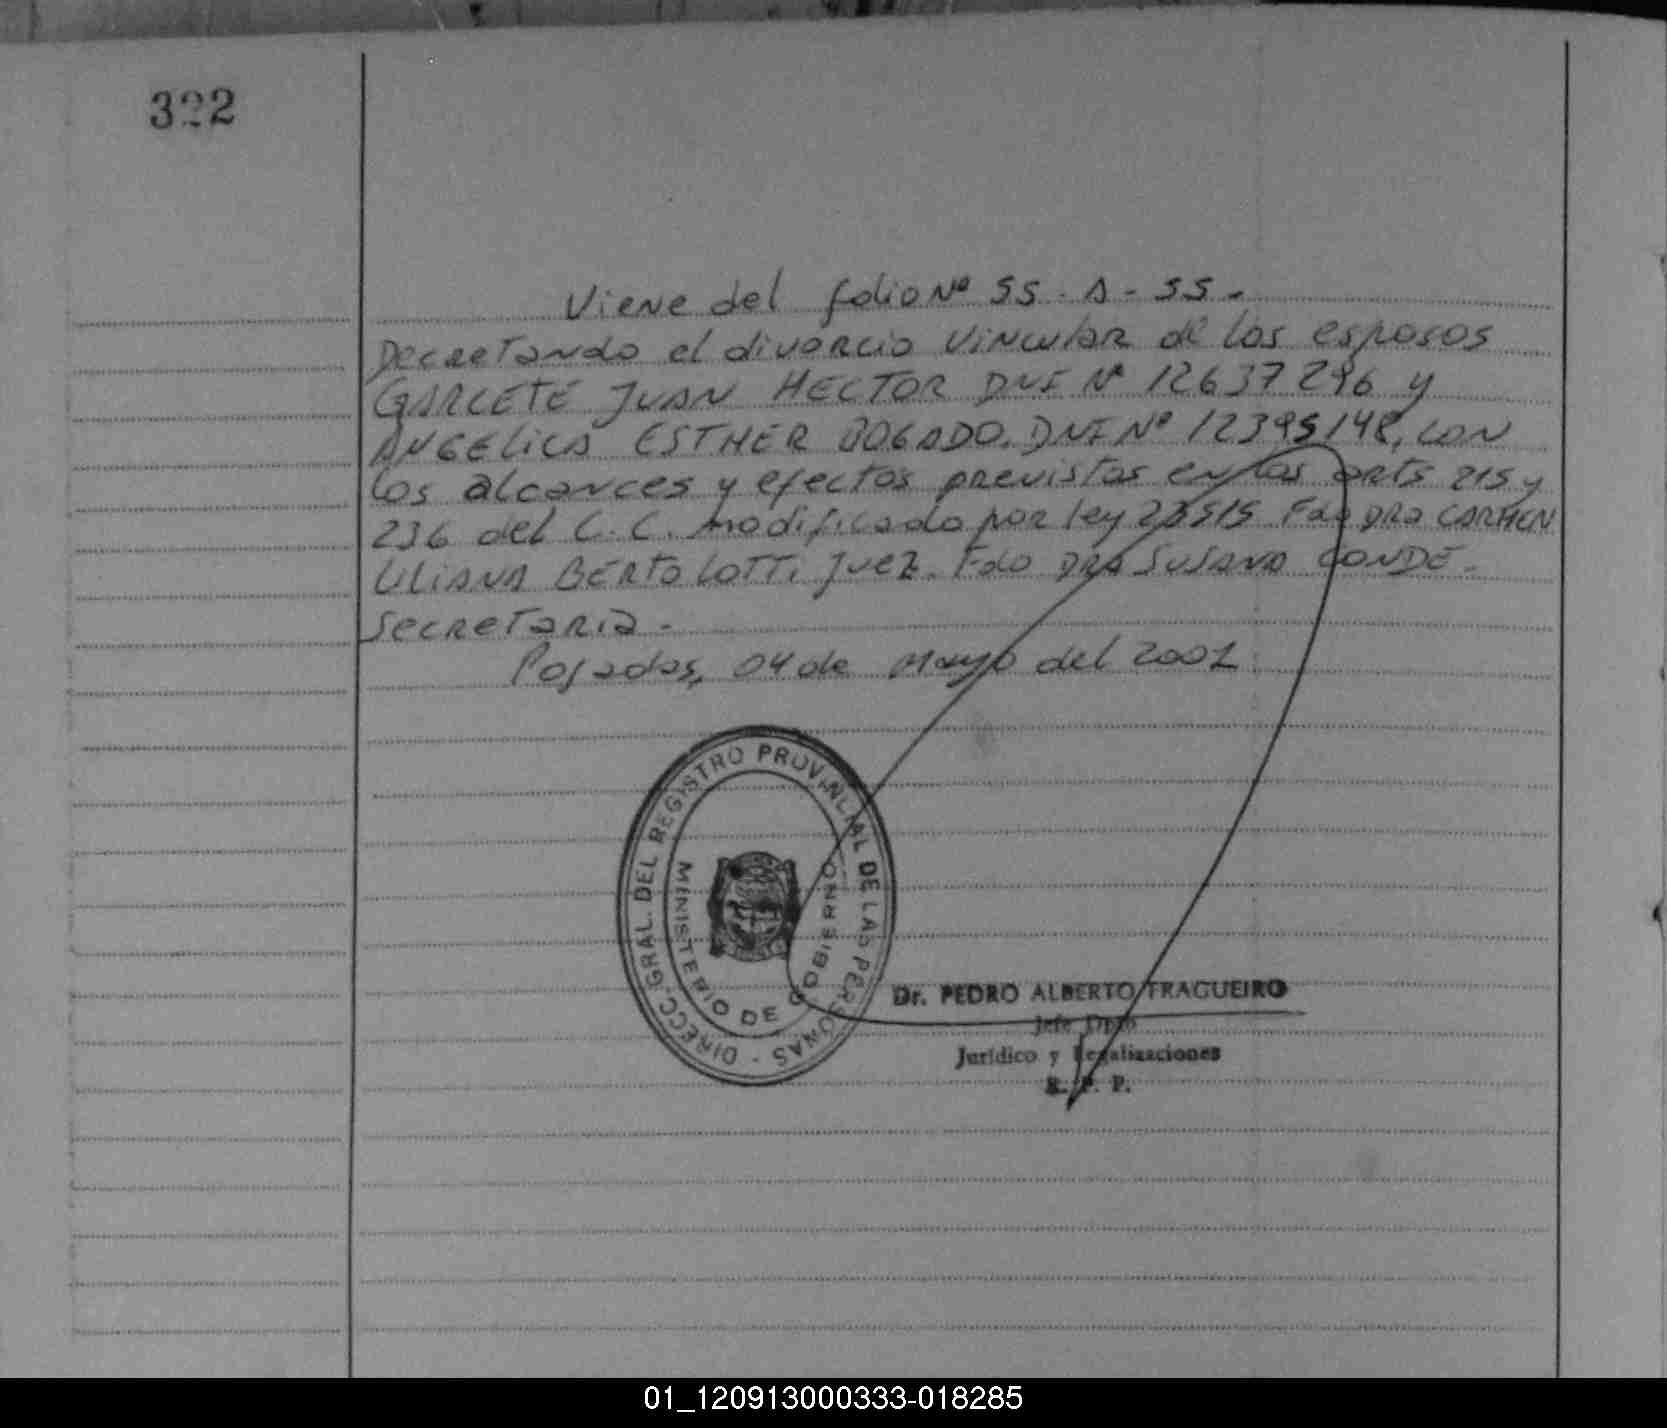 322
Viene del folio Nº 55 - A - 55 -
Decretando el divorcio vincular de los esposos
GARCETE JUAN HECTOR DNI Nº 12637296 y
ANGELICA ESTHER BOGADO. DNI Nº 12395148, CON
los alcances y efectos previstos en los arts 215 y
236 del C. C. modificado por ley 23515 Fdo DRA CARMEN
LILIANA BERTOLOTTI JUEZ. Fdo DRA SUSANA CONDE -
Secretaria -
Posadas, 04 de Mayo del 2001
DIRECC. GRAL. DEL REGISTRO PROVINCIAL DE LAS PERSONAS -
MINISTERIO DE GOBIERNO
Dr. PEDRO ALBERTO TRAGUEIRO
Jefe Dpto
Jurídico y Legalizaciones
R. P. P.
01_120913000333-018285